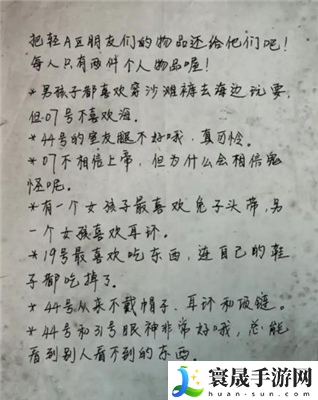 把轻A区朋友们的物品还给他们吧!
每人只有两件个人物品喔!
*男孩子都喜欢穿沙滩裤去海边玩耍,
但07号不喜欢海。
*44号的室友腿不好哦,真可怜。
*07不相信上帝,但为什么会相信鬼
怪呢。
*有一个女孩子最喜欢兔子头带,另
一个女孩喜欢耳环。
*19号最喜欢吃东西,连自己的鞋
子都吃掉了。
*44号从来不戴帽子、耳环和项链。
*44号和31号眼神非常好哦,总能
看到别人看不到的东西。
寰晟手游网
huan-sun.com